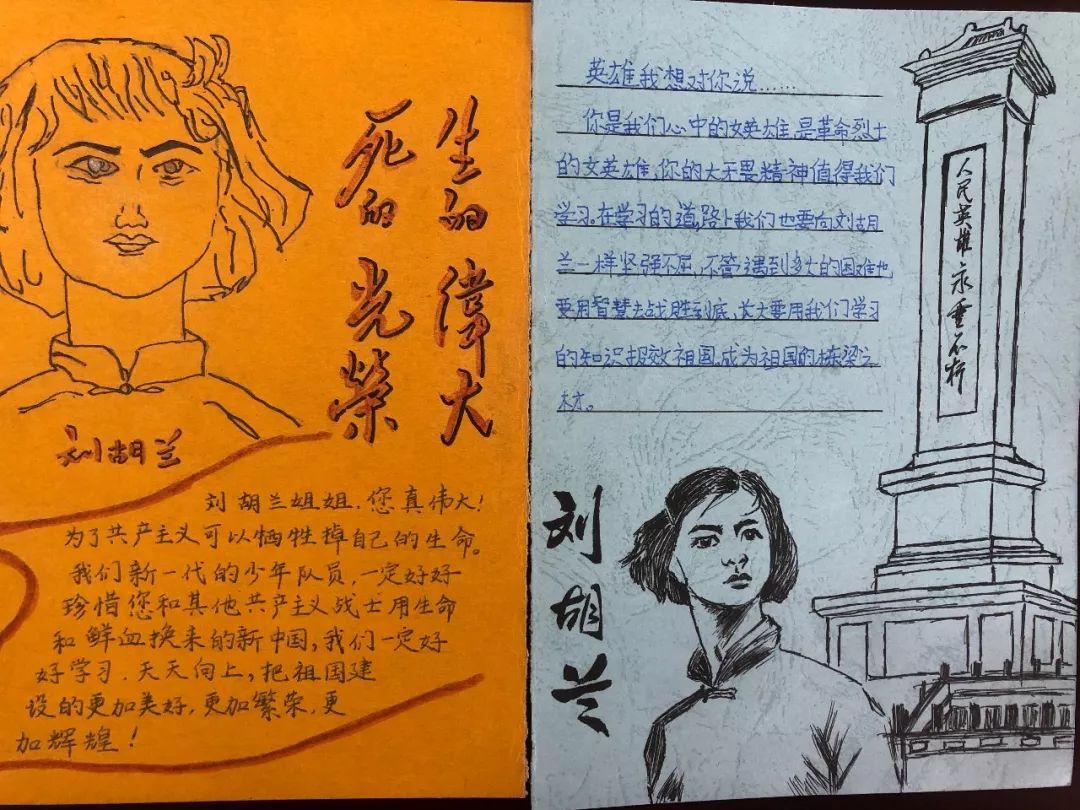 生的偉大
死的光榮
刘胡兰
刘胡兰姐姐.您真伟大!
为了共产主义可以牺牲掉自己的生命。
我们新一代的少年队员,一定好好
珍惜您和其他共产主义战士用生命
和鲜血换来的新中国,我们一定好
好学习.天天向上,把祖国建
设的更加美好,更加繁荣,更
加辉煌!
英雄我想对你说……
你是我们心中的女英雄,是革命烈士
的女英雄,你的大无畏精神值得我们
学习。在学习的道路上我们也要向刘胡
兰一样坚强不屈,不管遇到多大的困难也
要用智慧去战胜到底,长大要用我们学习
的知识报效祖国.成为祖国的栋梁之
材。
人民英雄永垂不朽
刘胡兰